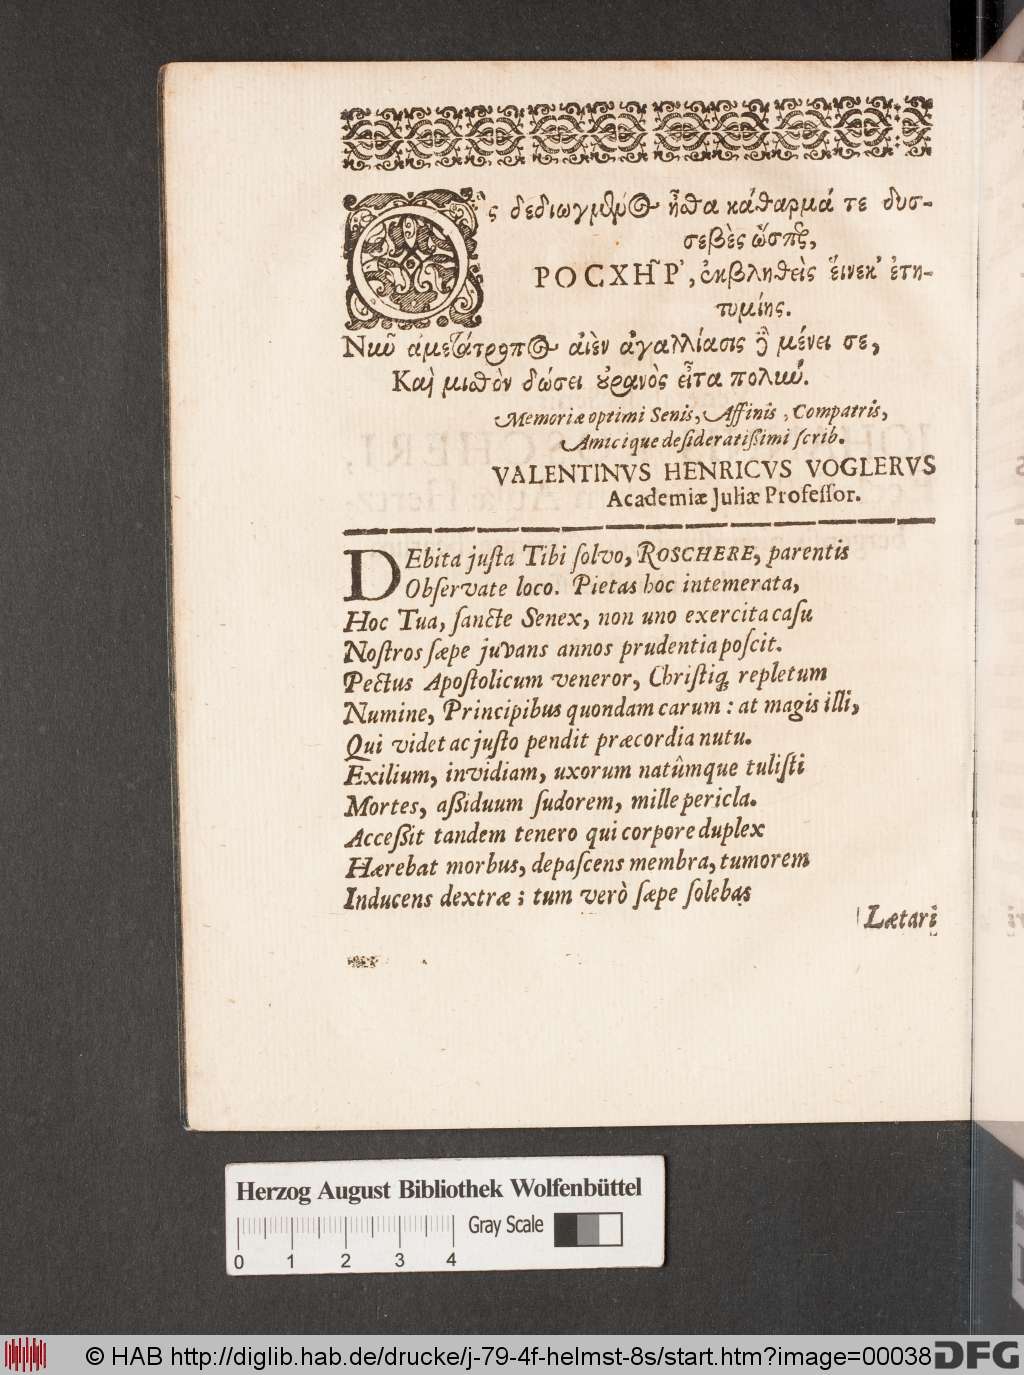 Ὃς δεδιωγμένος ἦσθα κάθαρμά τε δυσ-
σεβὲς ὥσπερ,
ΡΟΣΧΗΡ', ἐκβληθεὶς εἵνεκ' ἐτη-
τυμίης.
Νῦν ἀμετάτροπος αἰὲν ἀγαλλίασις μένει σε,
Καὶ μισθὸν δώσει οὐρανὸς εἶτα πολύν.
Memoriæ optimi Senis, Affinis, Compatris,
Amicique desideratißimi ſcrib.
VALENTINVS HENRICVS VOGLERVS
Academiæ Juliæ Profeſſor.
DEbita juſta Tibi ſolvo, ROSCHERE, parentis
Obſervate loco. Pietas hoc intemerata,
Hoc Tua, ſancte Senex, non uno exercita caſu
Noſtros ſæpe juvans annos prudentia poſcit.
Pectus Apoſtolicum veneror, Chriſtiq; repletum
Numine, Principibus quondam carum: at magis illi,
Qui videt ac juſto pendit præcordia nutu.
Exilium, invidiam, uxorum natûmque tuliſti
Mortes, aßiduum ſudorem, mille pericla.
Acceßit tandem tenero qui corpore duplex
Hærebat morbus, depaſcens membra, tumorem
Inducens dextræ; tum verò ſæpe ſolebas
Lætari
Herzog August Bibliothek Wolfenbüttel
Gray Scale
0 1 2 3 4
© HAB http://diglib.hab.de/drucke/j-79-4f-helmst-8s/start.htm?image=00038
DFG